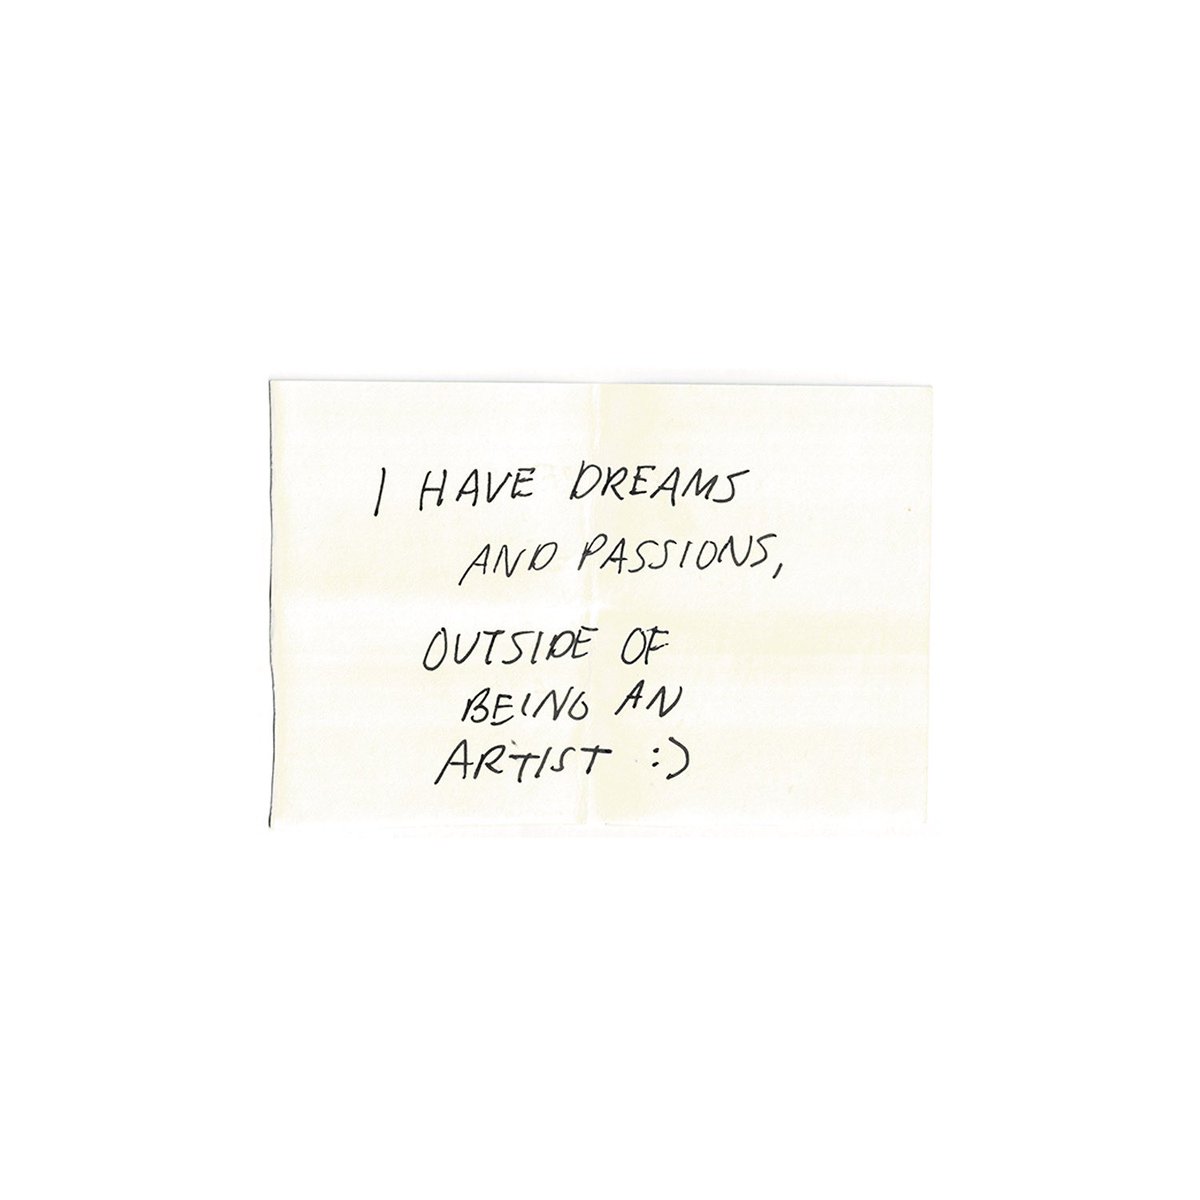 I HAVE DREAMS
AND PASSIONS,
OUTSIDE OF
BEING AN
ARTIST :)